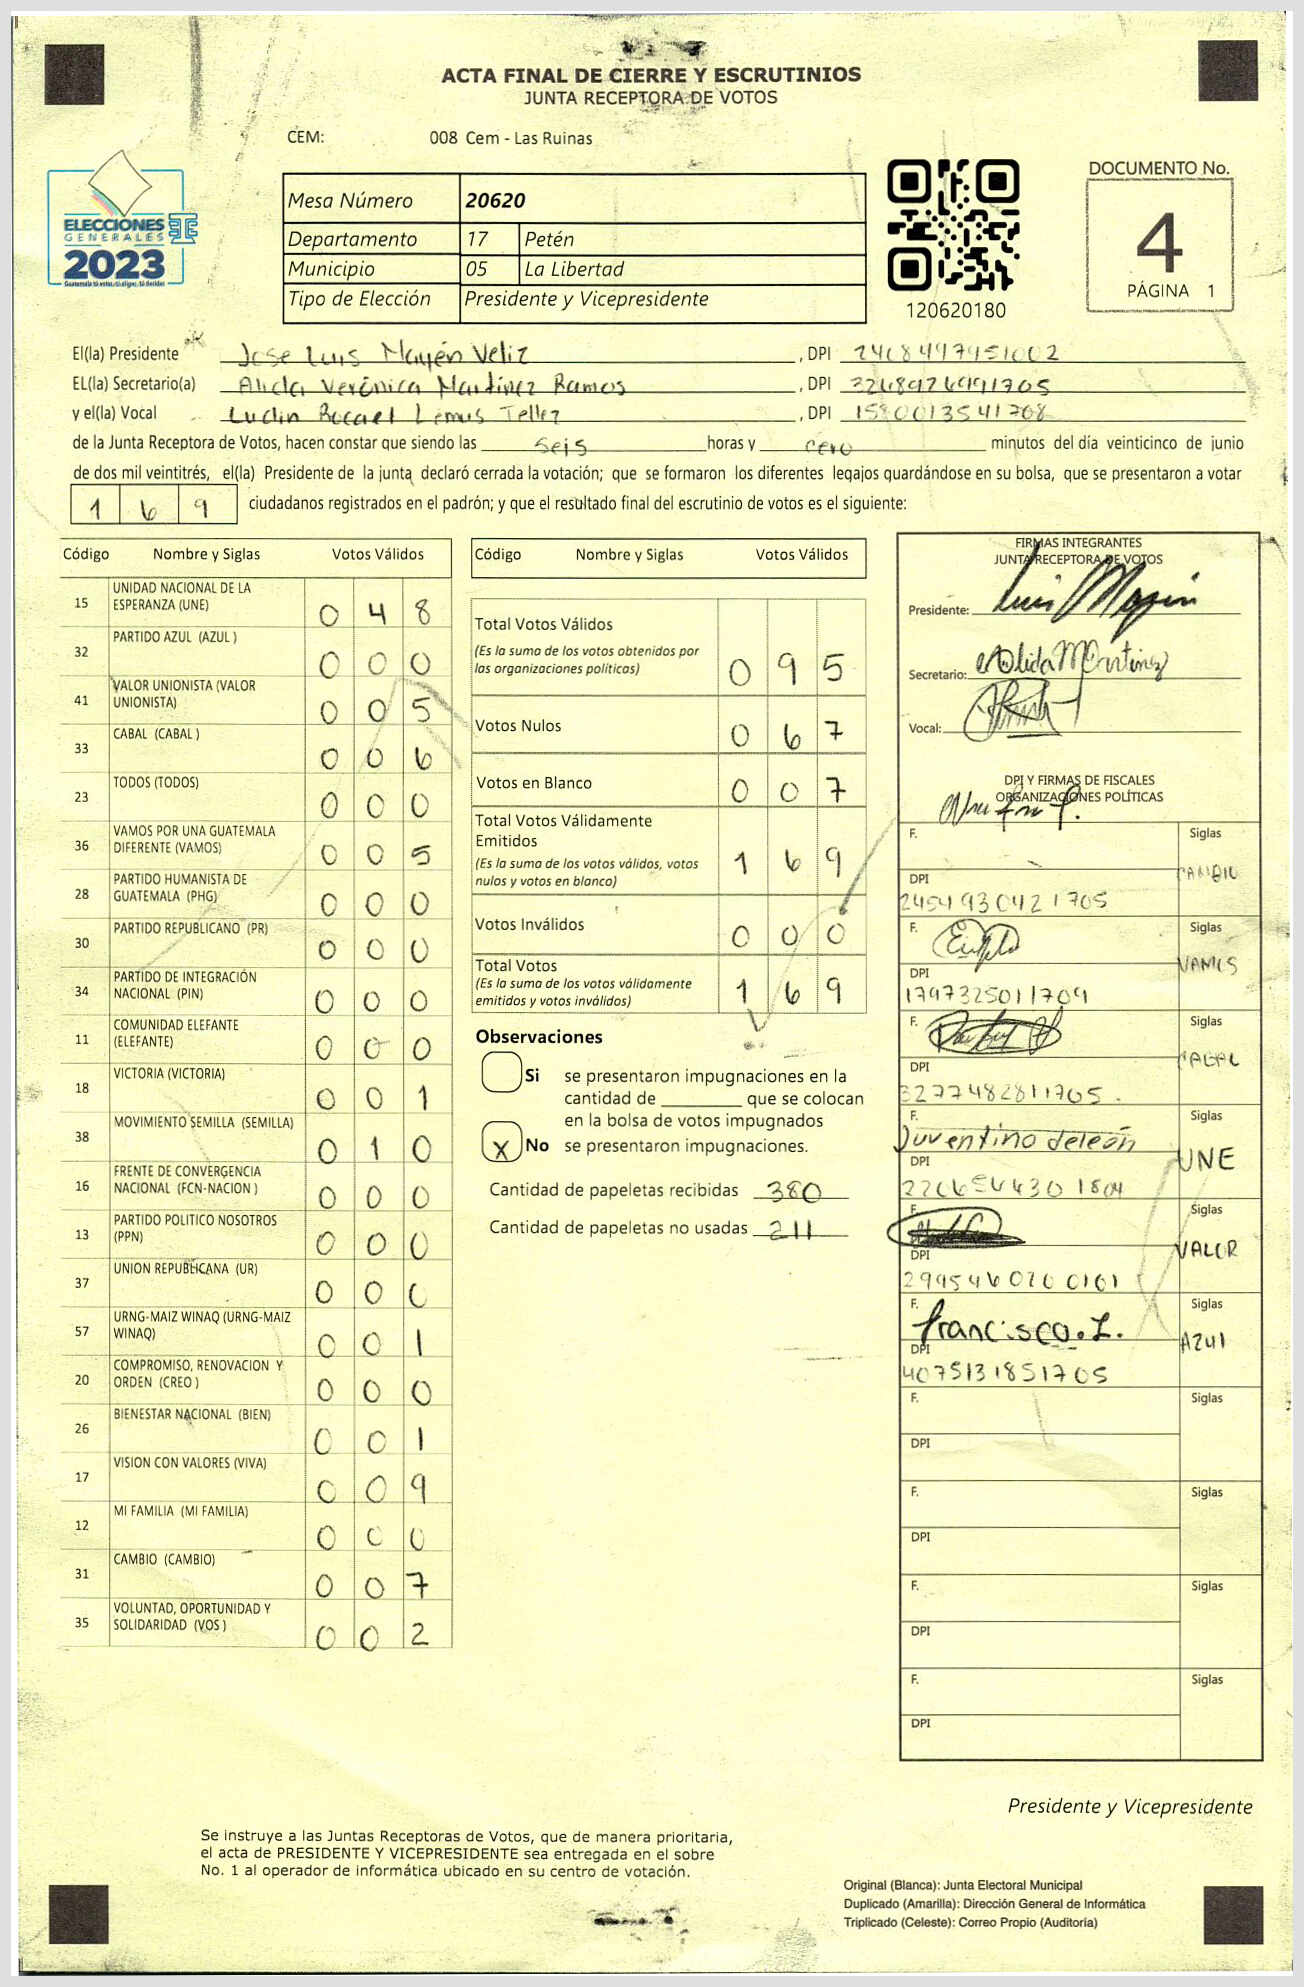 ACTA FINAL DE CIERRE Y ESCRUTINIOS
JUNTA RECEPTORA DE VOTOS
CEM: 008 Cem - Las Ruinas
DOCUMENTO No.
4
PÁGINA 1
ELECCIONES
GENERALES
2023
Guatemala tú votas, tú eliges, tú decides
Mesa Número 20620
Departamento 17 Petén
Municipio 05 La Libertad
Tipo de Elección Presidente y Vicepresidente
120620180
El(la) Presidente Jose Luis Mayén Veliz , DPI 2408497951002
EL(la) Secretario(a) Alida Verónica Martínez Ramos , DPI 3248926991705
y el(la) Vocal Ludin Rocael Lemus Tellez , DPI 1580013541708
de la Junta Receptora de Votos, hacen constar que siendo las seis horas y cero minutos del día veinticinco de junio
de dos mil veintitrés, el(la) Presidente de la junta declaró cerrada la votación; que se formaron los diferentes legajos quardándose en su bolsa, que se presentaron a votar
1 6 9 ciudadanos registrados en el padrón; y que el resultado final del escrutinio de votos es el siguiente:
Código Nombre y Siglas Votos Válidos
15 UNIDAD NACIONAL DE LA ESPERANZA (UNE) 0 4 8
32 PARTIDO AZUL (AZUL ) 0 0 0
41 VALOR UNIONISTA (VALOR UNIONISTA) 0 0 5
33 CABAL (CABAL ) 0 0 6
23 TODOS (TODOS) 0 0 0
36 VAMOS POR UNA GUATEMALA DIFERENTE (VAMOS) 0 0 5
28 PARTIDO HUMANISTA DE GUATEMALA (PHG) 0 0 0
30 PARTIDO REPUBLICANO (PR) 0 0 0
34 PARTIDO DE INTEGRACIÓN NACIONAL (PIN) 0 0 0
11 COMUNIDAD ELEFANTE (ELEFANTE) 0 0 0
18 VICTORIA (VICTORIA) 0 0 1
38 MOVIMIENTO SEMILLA (SEMILLA) 0 1 0
16 FRENTE DE CONVERGENCIA NACIONAL (FCN-NACION ) 0 0 0
13 PARTIDO POLITICO NOSOTROS (PPN) 0 0 0
37 UNION REPUBLICANA (UR) 0 0 0
57 URNG-MAIZ WINAQ (URNG-MAIZ WINAQ) 0 0 1
20 COMPROMISO, RENOVACION Y ORDEN (CREO ) 0 0 0
26 BIENESTAR NACIONAL (BIEN) 0 0 1
17 VISION CON VALORES (VIVA) 0 0 9
12 MI FAMILIA (MI FAMILIA) 0 0 0
31 CAMBIO (CAMBIO) 0 0 7
35 VOLUNTAD, OPORTUNIDAD Y SOLIDARIDAD (VOS ) 0 0 2
Código Nombre y Siglas Votos Válidos
Total Votos Válidos
(Es la suma de los votos obtenidos por las organizaciones políticas) 0 9 5
Votos Nulos 0 6 7
Votos en Blanco 0 0 7
Total Votos Válidamente Emitidos
(Es la suma de los votos válidos, votos nulos y votos en blanco) 1 6 9
Votos Inválidos 0 0 0
Total Votos
(Es la suma de los votos válidamente emitidos y votos inválidos) 1 6 9
Observaciones
Si se presentaron impugnaciones en la
cantidad de ________ que se colocan
en la bolsa de votos impugnados
X No se presentaron impugnaciones.
Cantidad de papeletas recibidas 380
Cantidad de papeletas no usadas 211
FIRMAS INTEGRANTES
JUNTA RECEPTORA DE VOTOS
Presidente: Luis Mayén
Secretario: Alida Martinez
Vocal:
DPI Y FIRMAS DE FISCALES
ORGANIZACIONES POLÍTICAS
F. Siglas CAMBIO
DPI
2454930421705
F. Siglas VAMOS
DPI
1797325011709
F. Siglas CABAL
DPI
3277482811705.
F. Juventino deleón Siglas UNE
DPI
F. Siglas VALOR
DPI
2995460200101
F. francisco. L. Siglas AZUl
DPI
4075131851705
F. Siglas
DPI
F. Siglas
DPI
F. Siglas
DPI
F. Siglas
DPI
Presidente y Vicepresidente
Se instruye a las Juntas Receptoras de Votos, que de manera prioritaria,
el acta de PRESIDENTE Y VICEPRESIDENTE sea entregada en el sobre
No. 1 al operador de informática ubicado en su centro de votación.
Original (Blanca): Junta Electoral Municipal
Duplicado (Amarilla): Dirección General de Informática
Triplicado (Celeste): Correo Propio (Auditoría)